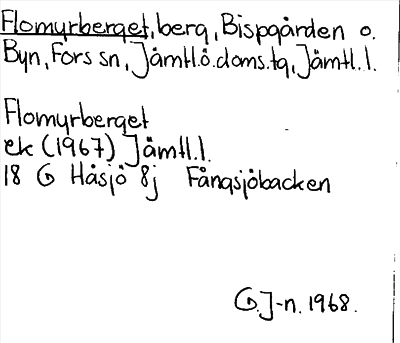 Flomyrberget, berg, Bispgården o.
Byn, Fors sn, Jämtl.ö.doms.tg, Jämtl.l.
Flomyrberget
ek (1967) Jämtl.l.
18 G Håsjö 8j Fångsjöbacken
G.J-n. 1968.